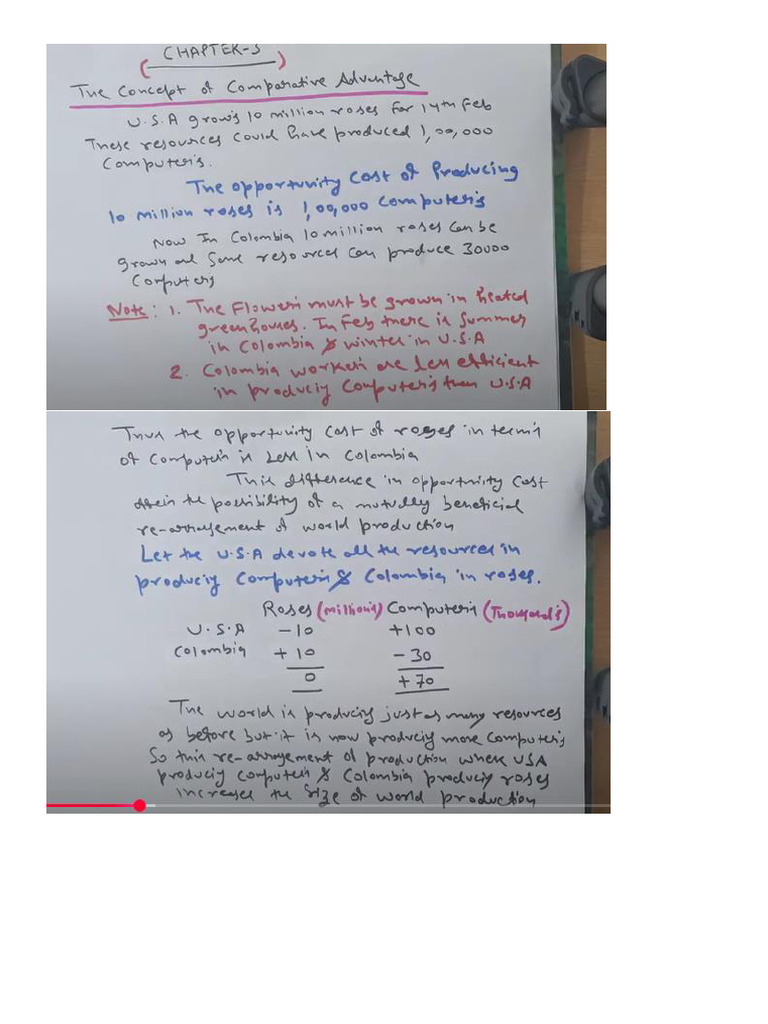 CHAPTER-3
The Concept of Comparative Advantage
U.S.A grows 10 million roses for 14th Feb
These resources could have produced 1,00,000
Computers.
The opportunity cost of Producing
10 million roses is 1,00,000 computers
Now In Colombia 10 million roses can be
grown and same resources can produce 30000
Computers
Note: 1. The Flowers must be grown in heated
greenhouses. In Feb there is summer
in Colombia & winter in U.S.A
2. Colombia workers are less efficient
in producing computers than U.S.A
Thus the opportunity cost of roses in terms
of computers is less in Colombia
This difference in opportunity cost
the possibility of a mutually beneficial
re-arrangement of world production
Let the U.S.A devote all the resources in
producing computers & Colombia in roses.
Roses (millions) Computers (Thousands)
U.S.A -10 +100
Colombia +10 -30
0 +70
The world is producing just as many resources
as before but it is now producing more computers
So this re-arrangement of production where USA
producing computers & Colombia producing roses
increases the size of world production